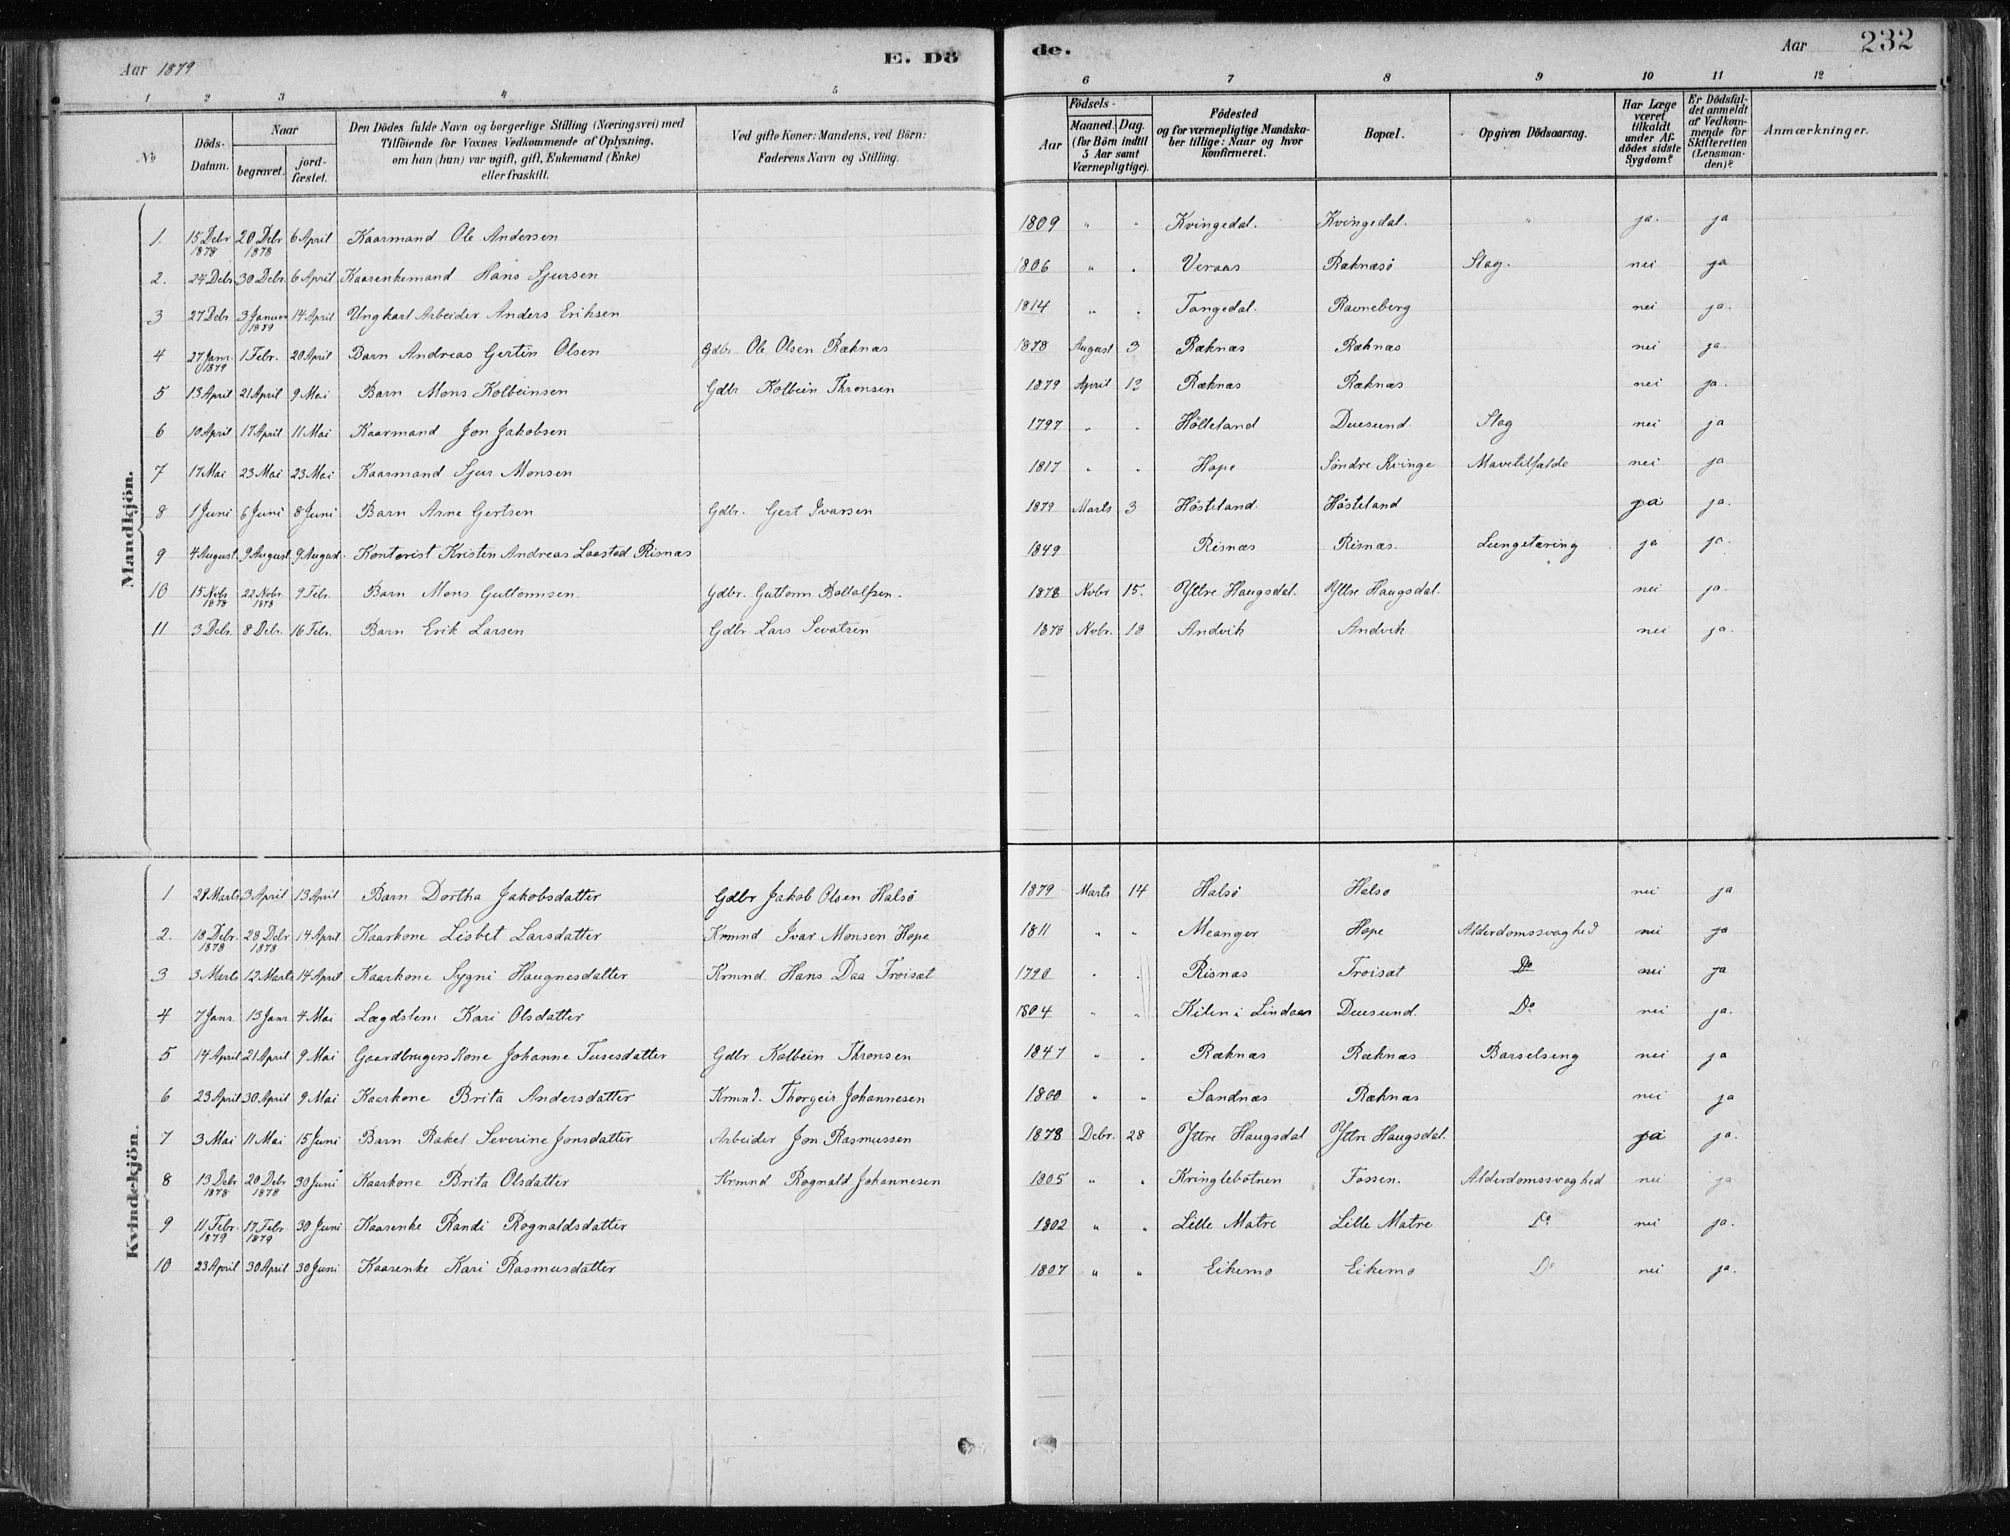 Aar 1879 E. Dö de. Aar 232
1 2 3 4 5 6 7 8 9 10 11 12
№ Döds-Datum. Naar begravet. jordfæstet. Den Dödes fulde Navn og borgerlige Stilling (Næringsvei) med Tilföiende for Voxnes Vedkommende af Oplysning, om han (hun) var ugift, gift, Enkemand (Enke) eller fraskilt. Ved gifte Koner: Mandens, ved Börn: Faderens Navn og Stilling. Födsels- Aar Maaned. Dag. (for Börn indtil 5 Aar samt Værnepligtige). Födested og for værnepligtige Mandskaber tillige: Naar og hvor konfirmeret. Bopæl. Opgiven Dödsaarsag. Har Læge været tilkaldt under Afdödes sidste Sygdom? Er Dödsfaldet anmeldt af Vedkommende for Skifteretten (Lensmanden)? Anmærkninger.
Mandkjön.
1. 15 Debr 1878 20 Debr 1878 6 April Kaarmand Ole Andersen 1809 " " Kvingedal. Kvingedal. " ja. ja
2. 24 Debr. 30 Debr. 6 April Kaarenkemand Hans Sjursen 1806 " " Veraas Ræknæsö Slag. nei ja
3 27 Debr 3 Januar 1879 14 April Ungkarl Arbeider Anders Eriksen 1814 " " Tangedal. Ravneberg nei ja.
4 27 Janr. 1879 1 Febr. 20 April Barn Andreas Gertin Olsen Gdbr. Ole Olsen Ræknæs 1878 August 3 Ræknæs Ræknæs nei ja.
5 13 April 21 April 9 Mai Barn Mons Kolbeinsen Gdbr Kolbein Thronsen 1879 April 13 Ræknæs Ræknæs nei ja.
6 10 April 17 April 11 Mai Kaarmand Jon Jakobsen 1797 " " Hölleland Duesund Slag nei ja
7 17 Mai 23 Mai 23 Mai Kaarmand Sjur Monsen 1817 " " Hope Söndre Kvinge Mavetilfælde nei ja
8 1 Juni 6 Juni 8 Juni Barn Arne Gertsen Gdbr. Gert Ivarsen 1879 Marts 3 Hösteland Hösteland ja ja.
9 4 August 9 August 9 August. Kontorist Kristen Andreas Laastad Risnæs 1849 Risnæs Risnæs. Lungetæring ja ja.
10 15 Nobr 1878 22 Nobr. 1878 9 Febr. Barn Mons Guttormsen. Gdbr. Guttorm 1878 Nvbr 15. Yttre Haugsdal. Yttre Haugsdal. nei ja.
11 3 Debr. 8 Debr. 16 Febr. Barn Erik Larsen Gdbr Lars Sevatsen 1878 Nvbr. 18 Andvik Andvik nei ja.
Kvindekjön.
1 28 Marts 3 April 13 April Barn Dortha Jakobsdatter Gdbr Jakob Olsen Halsö 1879 Marts 14 Halsö Halsö nei ja
2. 18 Debr. 1878 28 Debr 1878 14 April Kaarkone Lisbet Larsdatter Krmnd Ivar Monsen Hope 1811 " " Meanger Hope Alderdomssvaghed nei ja
3 3 Marts 12 Marts 14 April Kaarkone Sygni Haugnesdatter Krmnd. Hans Daa Troisæt 1790 " " Risnæs Troisæt Do nei ja
4 7 Janr 13 Janr 4 Mai Lægdslem Kari Olsdatter 1804 " " Kilen i Lindaas Duesund. Do nei ja.
5 14 April 21 April 9 Mai Gaardbrugers Kone Johanne Tusesdatter Gdbr Kolbein Thronsen 1847 " " Ræknæs Ræknæs Barselseng nei ja
6 23 April 30 April 9 Mai Kaarkone Brita Andersdatter Krmnd. Thorgeir Johannesen 1800 " " Sandnæs Ræknæs nei ja
7 3 Mai 11 Mai 15 Juni Barn Rakel Severine Jonsdatter Arbeider Jon Rasmussen 1878 Debr. 28 Yttre Haugsdal Yttre Haugsdal. ja ja.
8 13 Debr 1878 20 Debr 1878 30 Juni Kaarkone Brita Olsdatter Krmnd Rognald Johannesen 1805 " " Kringlebotnen Fossen. Alderdomssvaghed nei ja
9 11 Febr. 1879 17 Febr 1879 30 Juni Kaarenke Randi Rognaldsdatter 1802 " " Lille Matre Lille Matre Do nei ja.
10 23 April 30 April 30 Juni Kaarenke Kari Rasmusdatter 1807 " " Eikemo Eikemo Do nei ja.